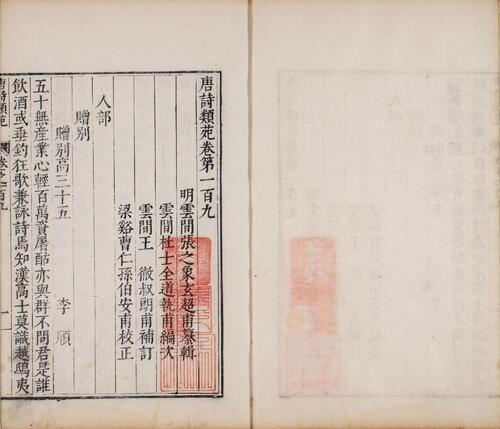 唐詩類苑卷第一百九
明雲間張之象玄超甫纂輯
雲間杜士全道執甫編次
雲間王　徹叔朗甫補訂
梁谿曹仁孫伯安甫校正
人部
贈別
贈別高三十五　李頎
五十無産業心輕百萬資屠酤亦與群不問君是誰
飲酒或垂釣狂歌兼詠詩焉知漢高士莫識越鴟夷
唐詩類苑　卷之一百九　一